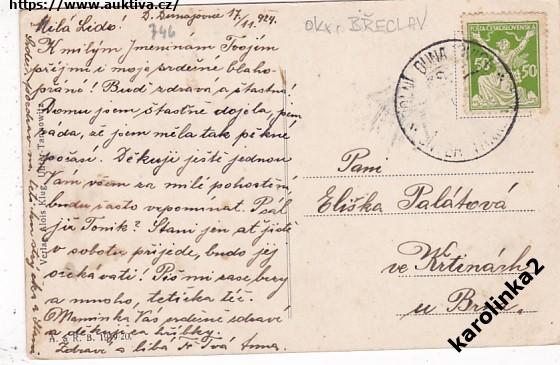 https://www.auktiva.cz/
D. Dunajovice 17/11. 924.
746
okr. BŘECLAV
Milá Lído!
K milým jmeninám Tvojím
přijmi i moje srdečné blaho-
přání! Buď zdravá a šťastná!
Domů jsem šťastně dojela, jsem
ráda, že jsem měla tak pěkné
počasí. Děkuji ještě jednou
Vám všem za milé pohostění,
budu často vzpomínat. Psal
již Toník? Stani jen at jistě
v sobotu přijede, budu jej
očekávati! Piš mi zase brzy
a mnoho, tetička též.
Maminka Vás srdečně zdraví
a děkuje za hříbky.
Zdraví a líbá Tvá Anna.
Verlag Alois Klug, Unter Tannowitz
A. & R. B. 1919/20.
POŠTA ČESKOSLOVENSKÁ
50 50
DOLNÍ DUNAJOVICE
UNTER TANNOWITZ
Paní
Eliška Palátová
ve Křtinách
u Brna.
karolinka2